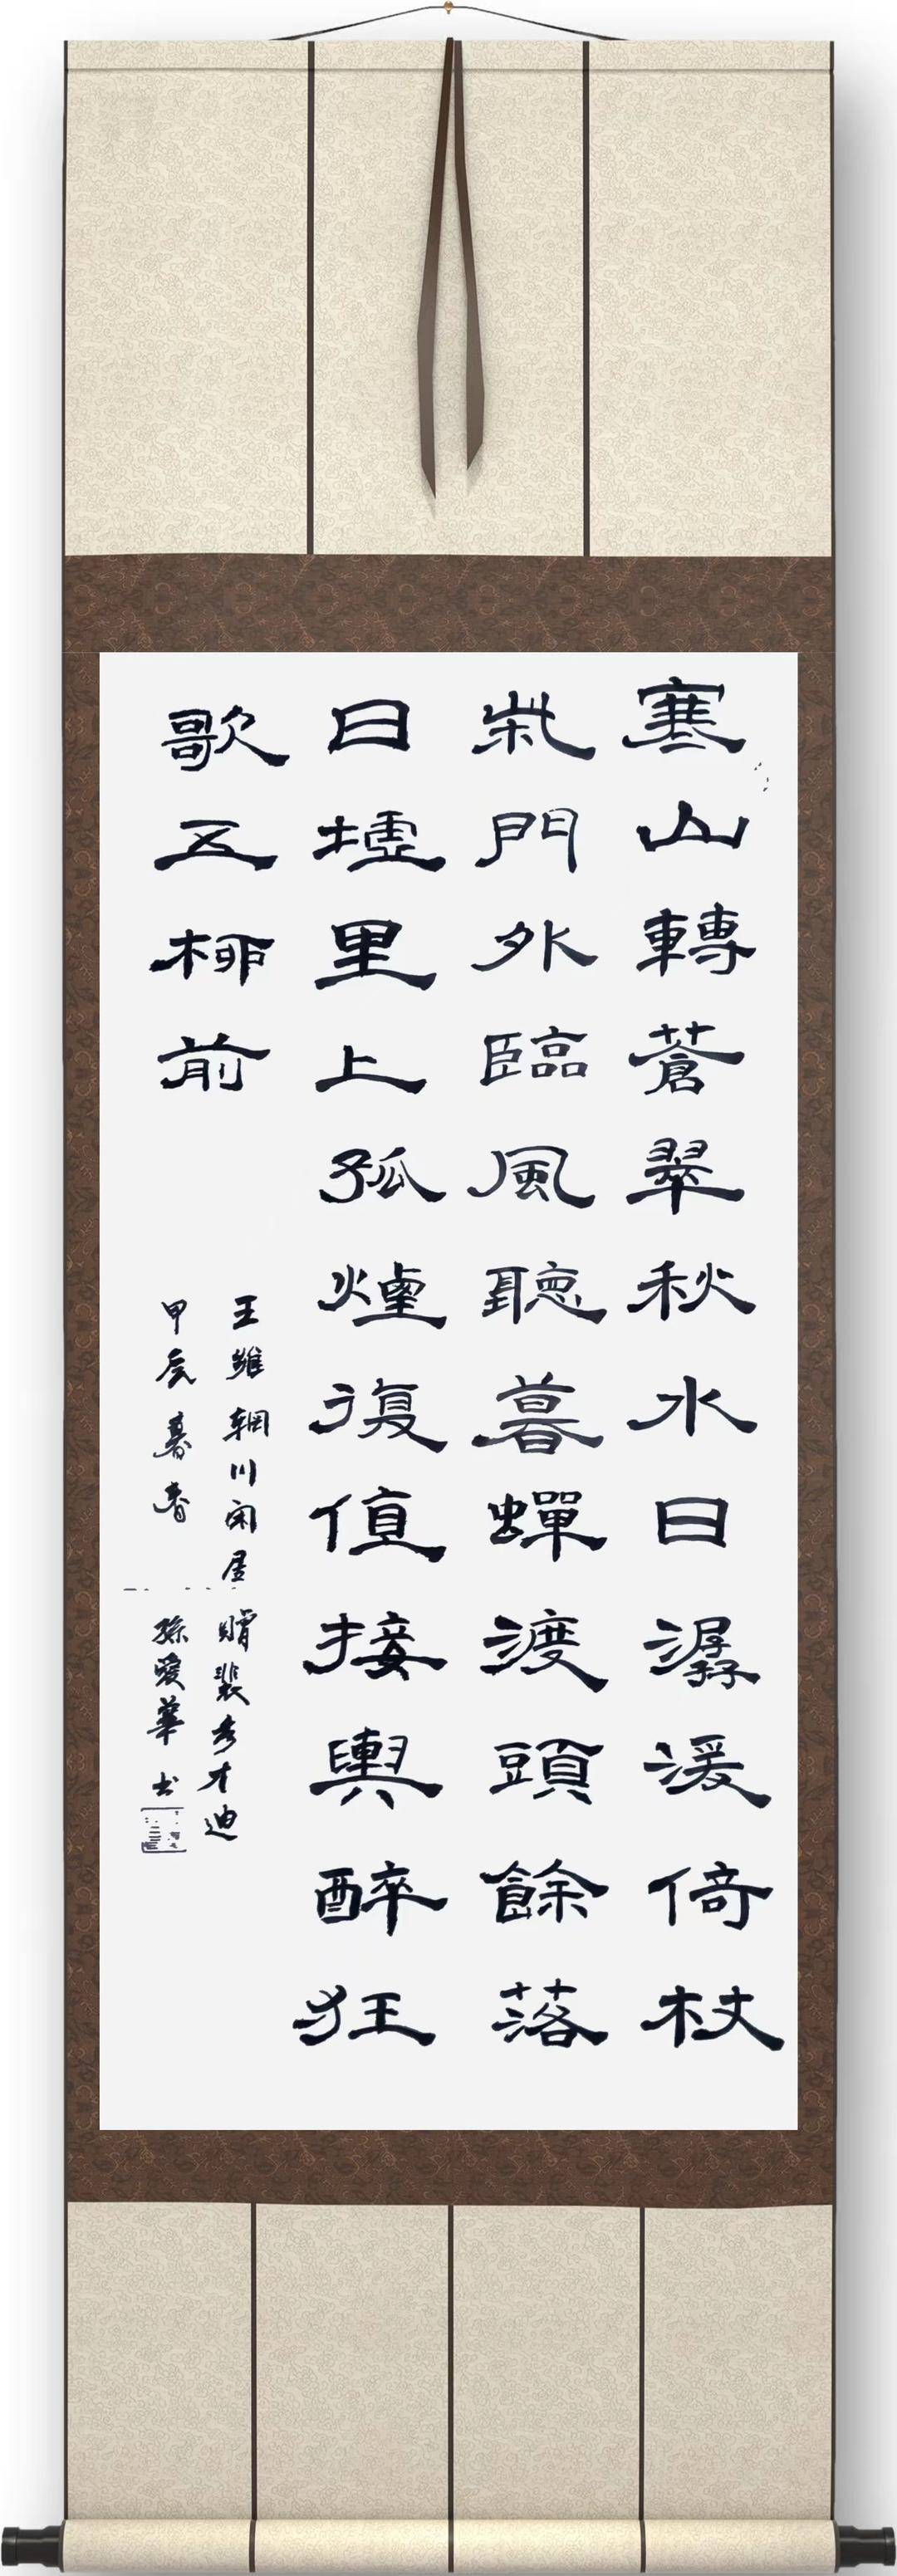 寒山轉蒼翠秋水日潺湲倚杖
柴門外臨風聽暮蟬渡頭餘落
日墟里上孤煙復值接輿醉狂
歌五柳前
王維輞川闲居贈裴秀才迪
甲辰暮春孫愛華书